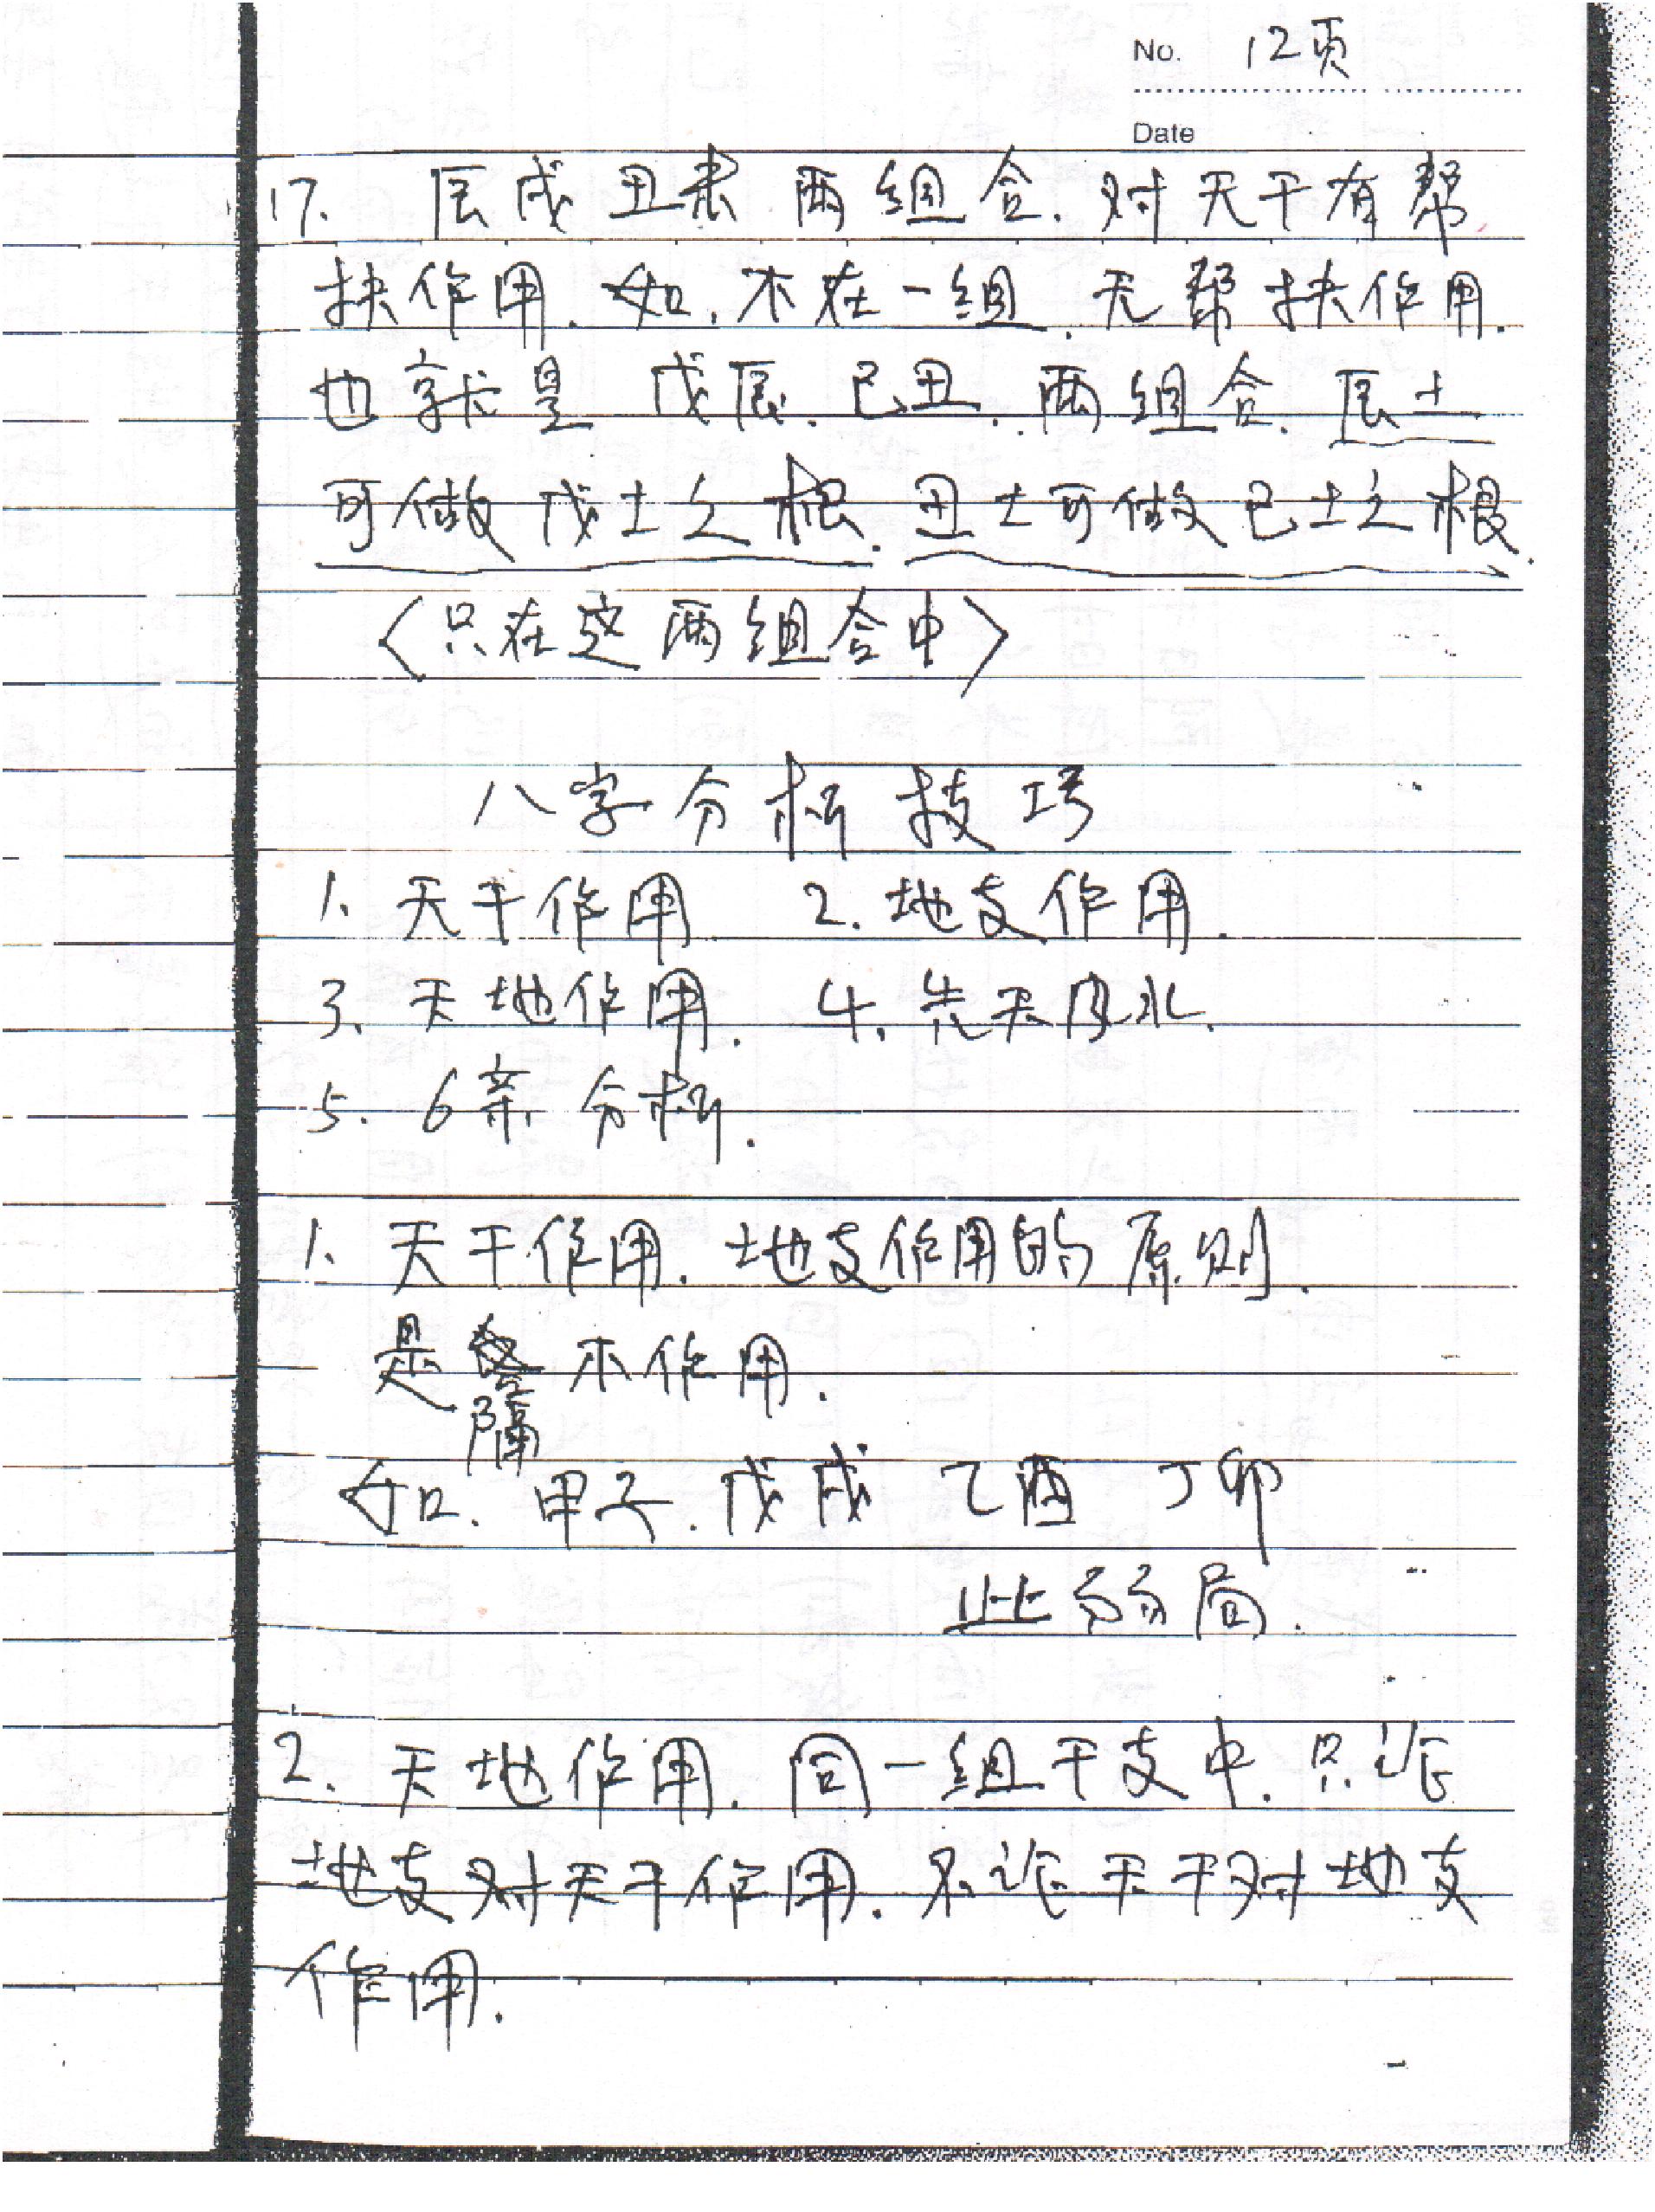 No. 12页
Date
17. 辰戌丑未 两组合. 对天干有帮
扶作用. 如. 不在一组. 无帮扶作用.
也就是 戊辰. 己丑. 两组合. 辰土
可做戊土之根. 丑土可做己土之根.
〈只在这两组合中〉
八字分析技巧
1. 天干作用. 2. 地支作用.
3. 天地作用. 4. 先天风水.
5. 6亲分析.
1. 天干作用. 地支作用的原则.
是隔不作用.
如. 甲子. 戊戌 乙酉 丁卯
此弱局.
2. 天地作用. 同一组干支中. 只论
地支对天干作用. 不论天干对地支
作用.